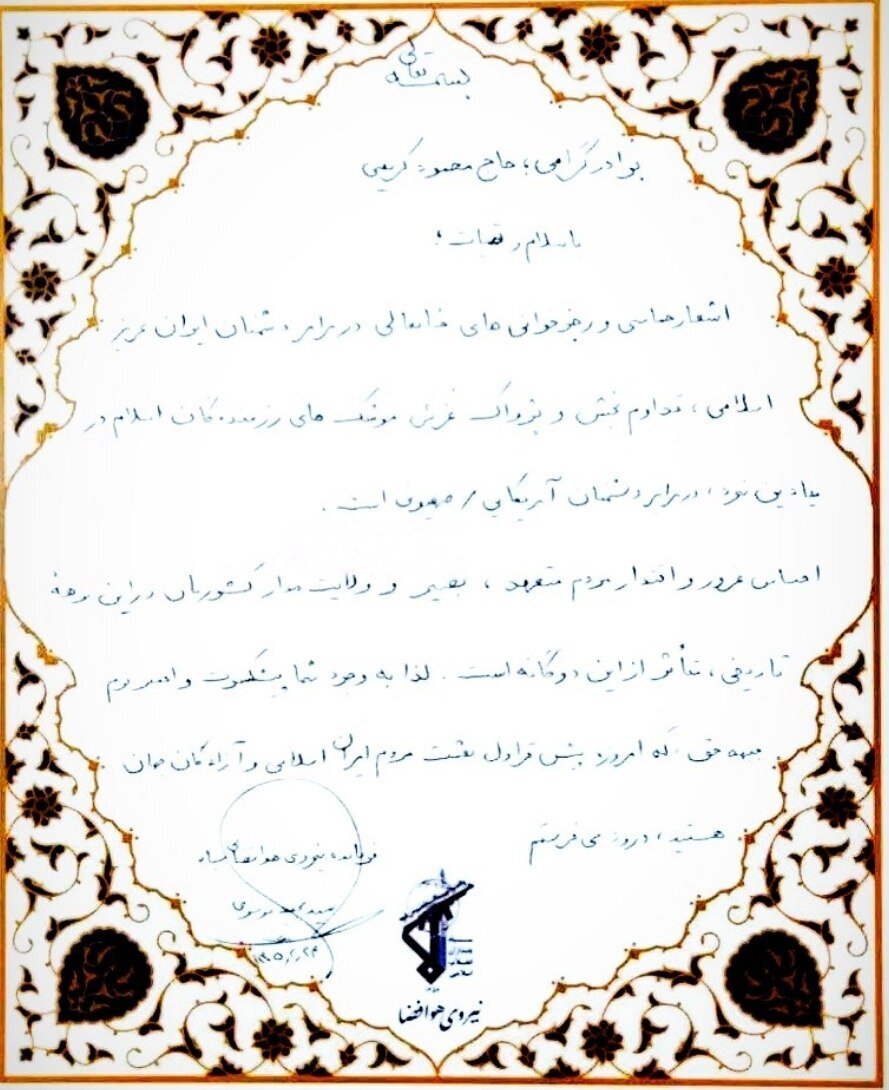 بسمه تعالی
برادر گرامی؛ حاج محمود کریمی
با سلام و تحیات؛
اشعار حماسی و رجزخوانی های جنابعالی در برابر دشمنان ایران عزیز
اسلامی، تداوم بخش و پژواک غرش موشک های رزمندگان اسلام در
میادین نبرد، در برابر دشمنان آمریکایی / صهیونی است.
احساس غرور و اقتدار مردم متعهد، بصیر و ولایت مدار کشورمان در این برهه
تاریخی، متأثر از این دوگانه است. لذا به وجود شما پیشکسوت و
جبهه حق، که امروزه پیش قراول بعثت مردم ایران اسلامی و آزادگان جهان
هستید، درود می فرستم
فرمانده نیروی هوافضای سپاه
سید مجید موسوی
نیروی هوافضا